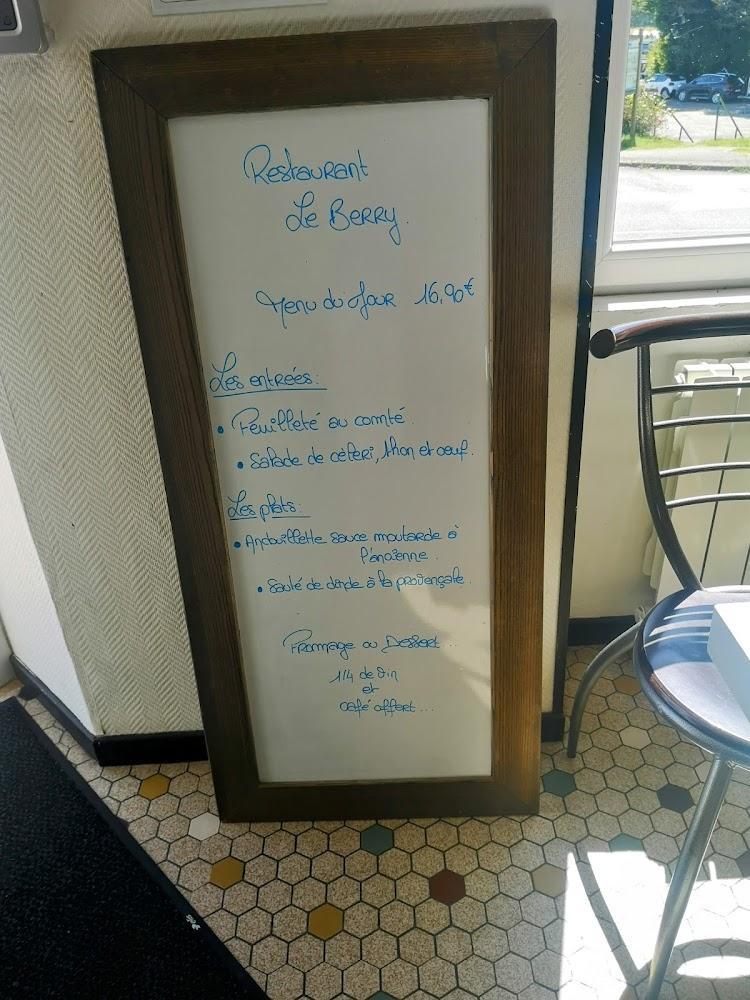 Restaurant
Le Berry.
Menu du Jour 16,90€
Les entrées:
• Feuilleté au comté.
• Salade de céleri, thon et œuf.
Les plats:
• Andouillette sauce moutarde à
l'ancienne.
• Sauté de dinde à la provençale.
Fromage ou Dessert...
1/4 de vin
et
café offert...